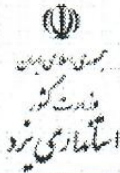 جمهوری اسلامی ایران
وزارت کشور
استانداری یزد